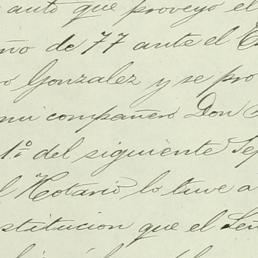 auto que proveyó el
ño de 77 ante el
Gonzalez y se pro
mi compañero Don
1º del siguiente Se
l Notario lo tuve a
stitucion que el Señ